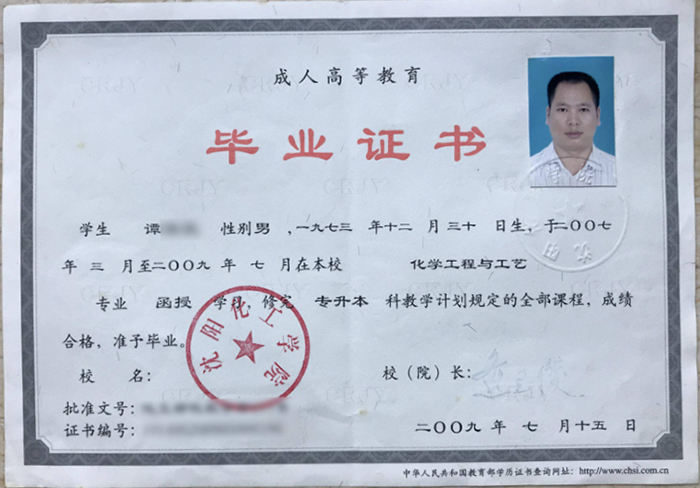 成人高等教育
毕业证书
学生 谭 性别男 ,一九七三 年十二月三十 日生，于二〇〇七
年 三 月至二〇〇九 年 七 月在本校 化学工程与工艺
专业 函授 学习，修完 专升本 科教学计划规定的全部课程，成绩
合格，准予毕业。
沈阳化工学院
校 名： 校（院）长：
批准文号：
证书编号： 二〇〇九 年 七 月 十五 日
中华人民共和国教育部学历证书查询网址：http://www.chsi.com.cn